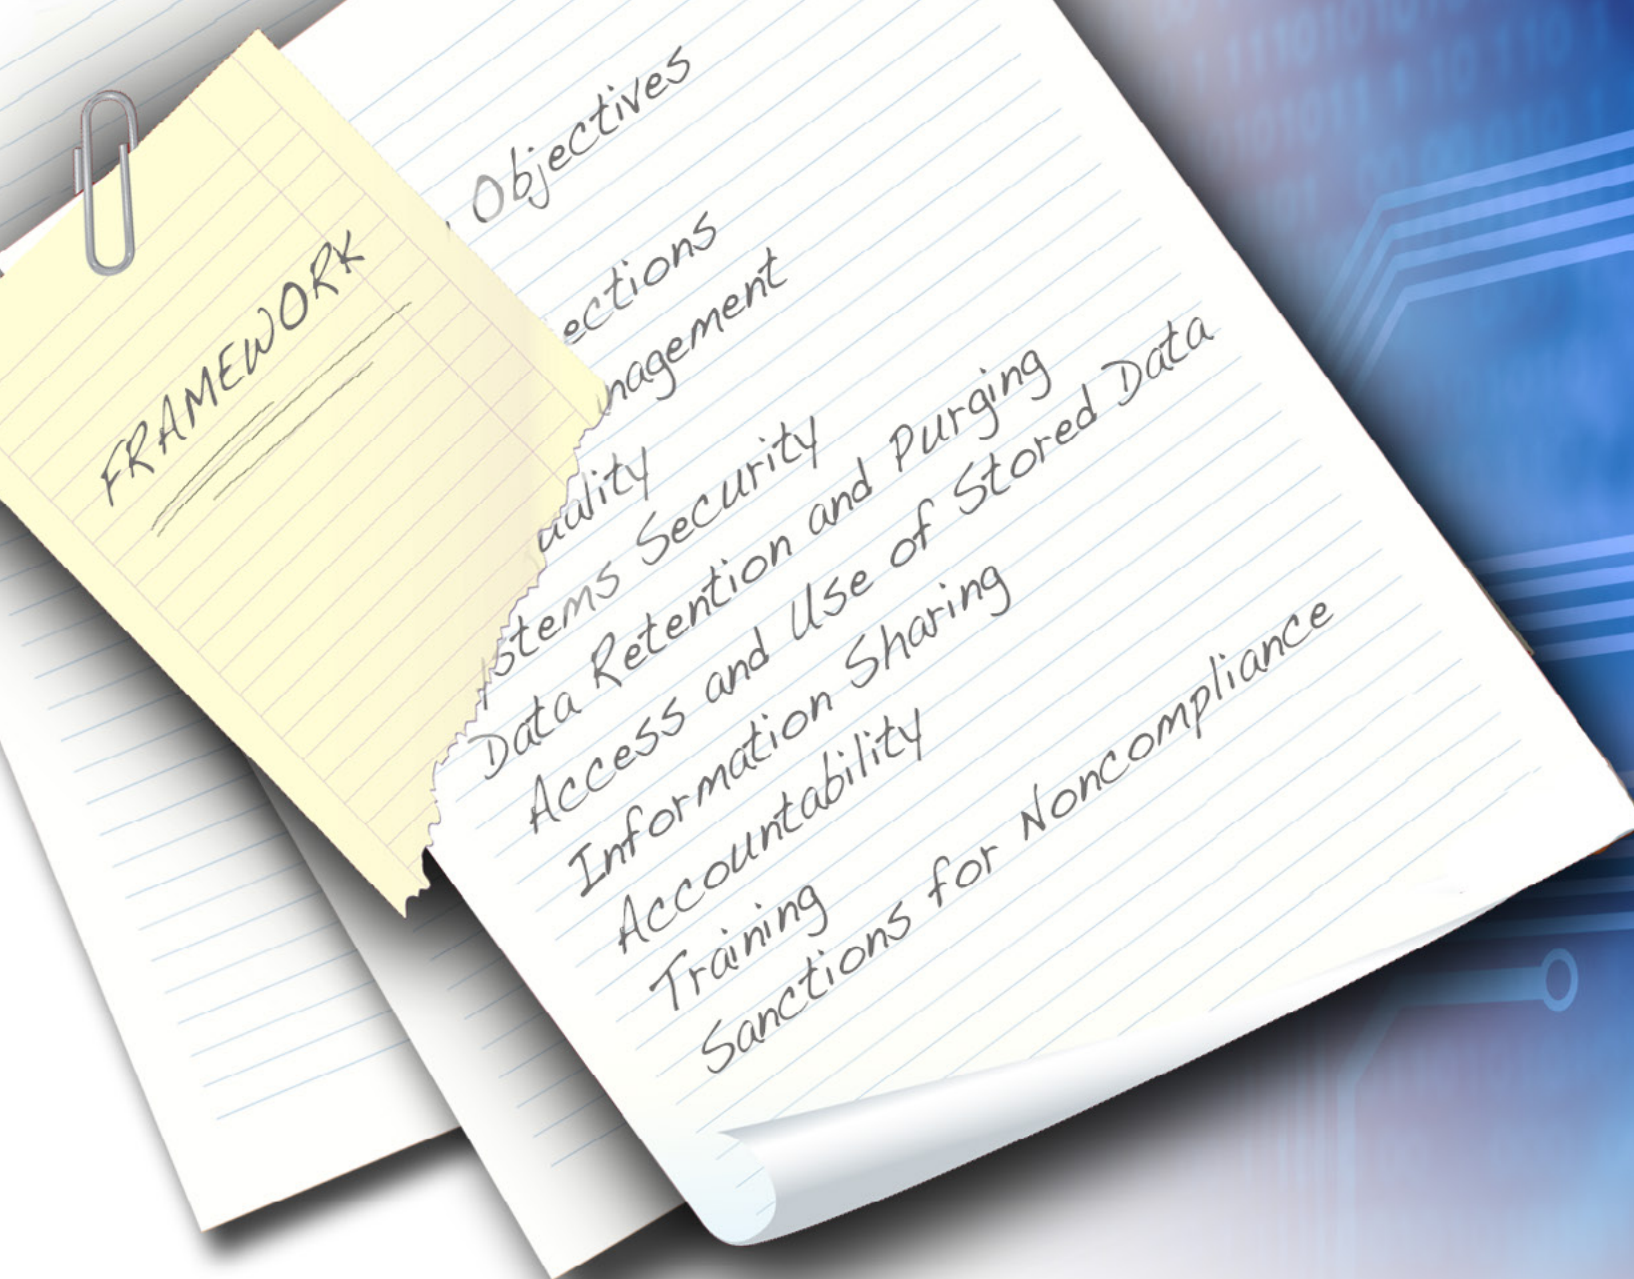 FRAMEWORK
Objectives
ections
nagement
uality
stems Security
Data Retention and Purging
Access and Use of Stored Data
Information Sharing
Accountability
Training
Sanctions for Noncompliance